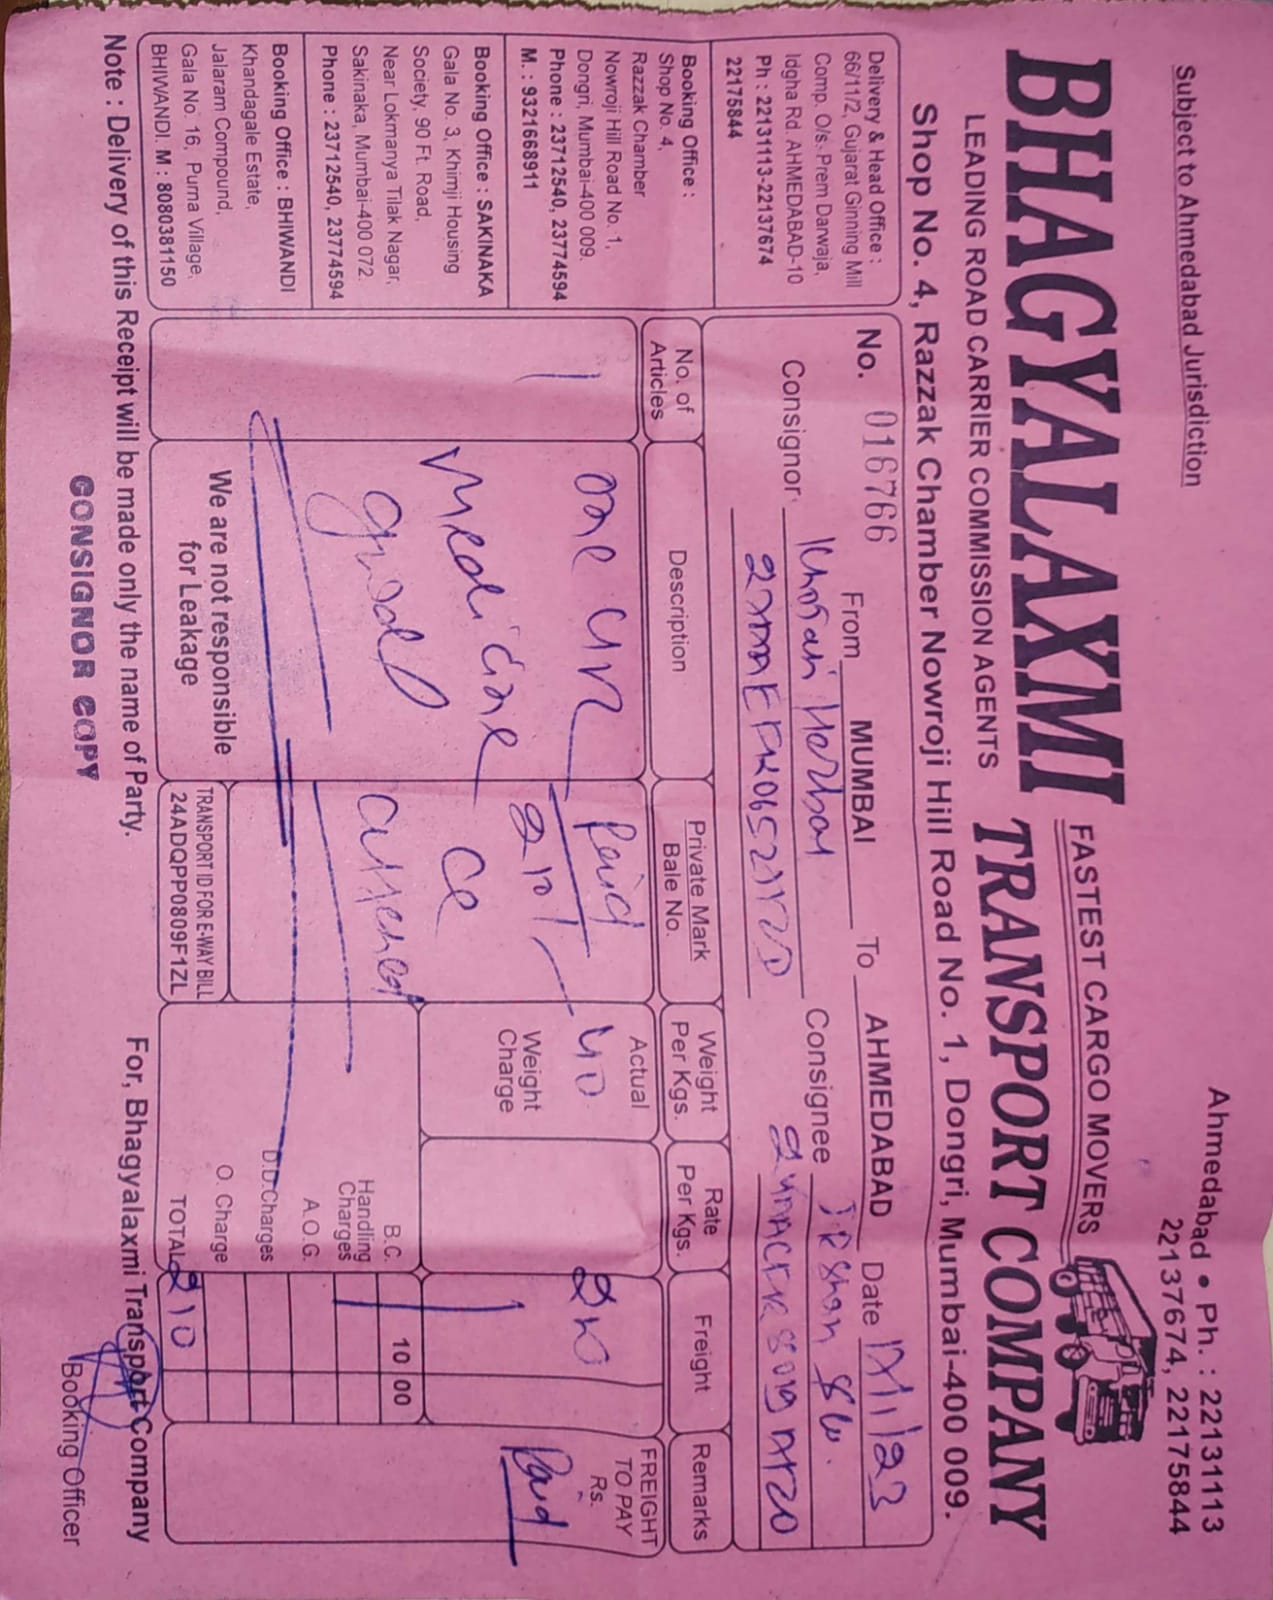 Subject to Ahmedabad Jurisdiction
Ahmedabad • Ph. : 22131113
22137674, 22175844
BHAGYALAXMI
FASTEST CARGO MOVERS
TRANSPORT COMPANY
LEADING ROAD CARRIER COMMISSION AGENTS
Shop No. 4, Razzak Chamber Nowroji Hill Road No. 1, Dongri, Mumbai-400 009.
Delivery & Head Office :
66/11/2, Gujarat Ginning Mill
Comp. O/s. Prem Darwaja,
Idgha Rd. AHMEDABAD-10
Ph : 22131113-22137674
22175844
Booking Office :
Shop No. 4,
Razzak Chamber
Nowroji Hill Road No. 1,
Dongri, Mumbai-400 009.
Phone : 23712540, 23774594
M. : 9321668911
Booking Office : SAKINAKA
Gala No. 3, Khimji Housing
Society, 90 Ft. Road,
Near Lokmanya Tilak Nagar,
Sakinaka, Mumbai-400 072.
Phone : 23712540, 23774594
Booking Office : BHIWANDI
Khandagale Estate,
Jalaram Compound,
Gala No. 16, Purna Village,
BHIWANDI. M : 8080381150
No. 016766 From MUMBAI To AHMEDABAD Date
Consignor Herbal Consignee
No. of Articles
Description
Private Mark
Bale No.
Weight Per Kgs.
Rate Per Kgs.
Freight
Remarks
1
one
medicine
good
Paid
210/-
Actual
40
Weight Charge
210
FREIGHT TO PAY Rs.
Paid
B.C. 10 00
Handling Charges
A.O.G.
D.D.Charges
O. Charge
TOTAL 210
We are not responsible
for Leakage
TRANSPORT ID FOR E-WAY BILL
24ADQPP0809F1ZL
Note : Delivery of this Receipt will be made only the name of Party.
For, Bhagyalaxmi Transport Company
CONSIGNOR COPY
Booking Officer